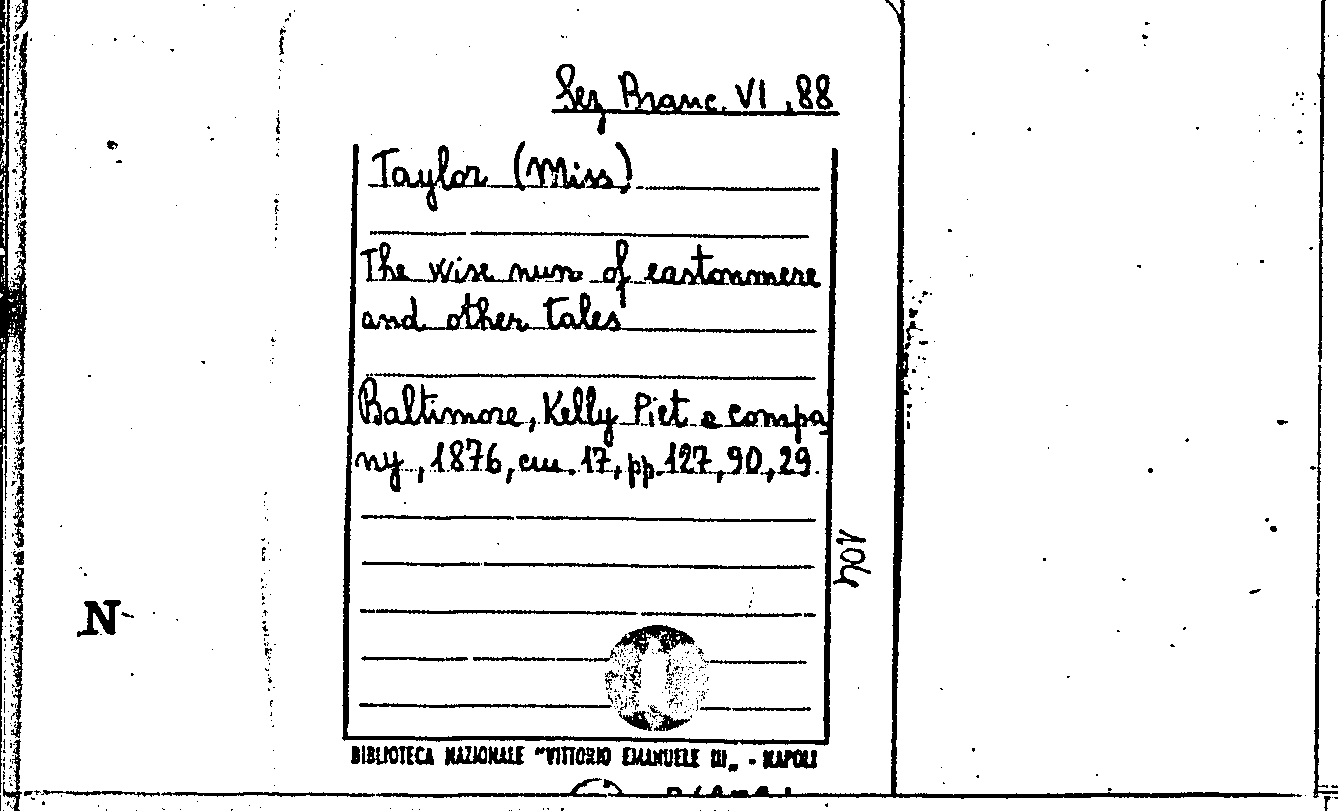 Sez Branc. VI, 88
Taylor (Miss)
The wise nun of eastonmere
and other tales
Baltimore, Kelly Piet e compa
ny, 1876, cm. 17, pp. 127, 90, 29.
104
N
BIBLIOTECA NAZIONALE "VITTORIO EMANUELE III„ - NAPOLI